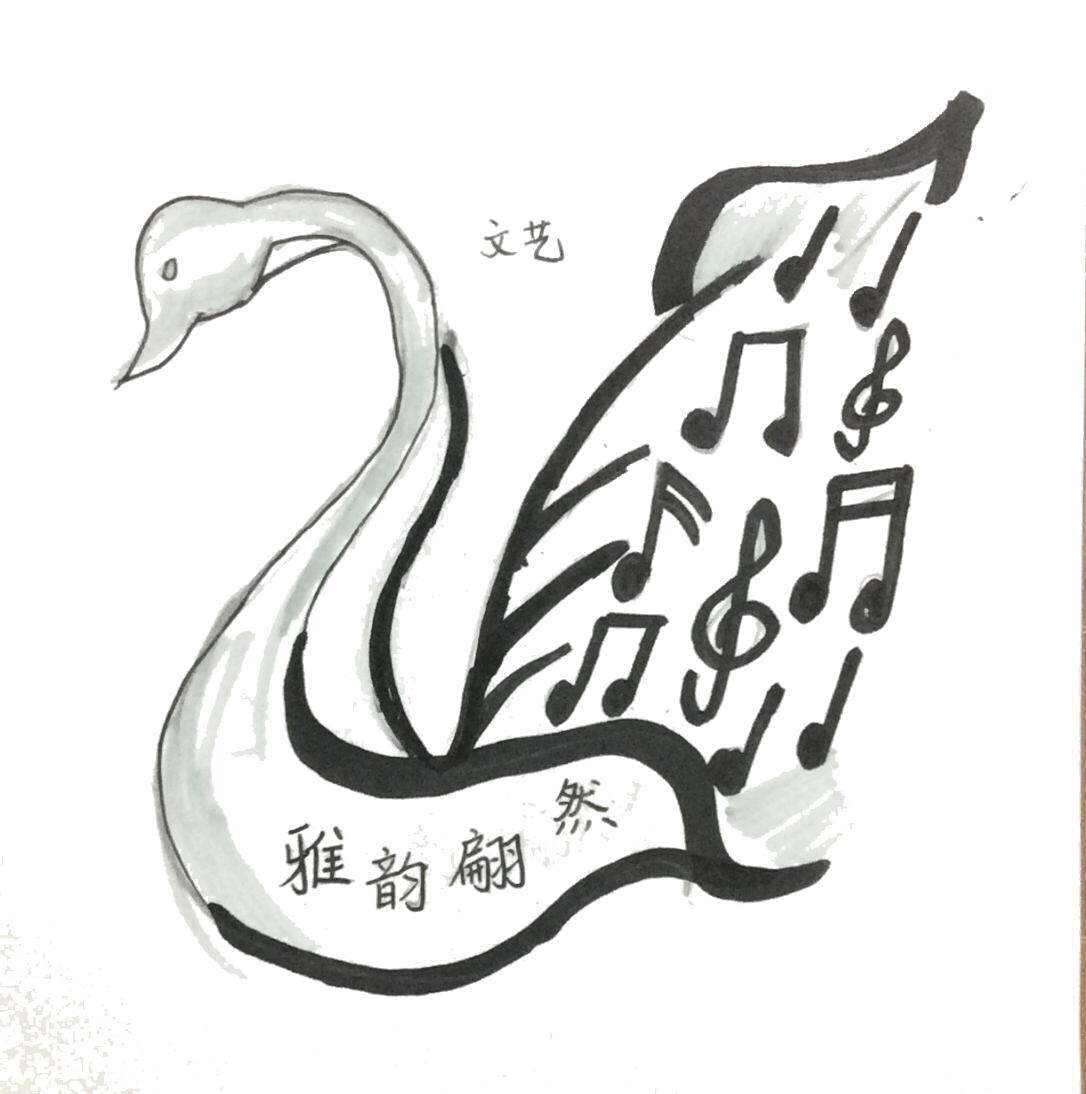 文艺
雅韵翩然